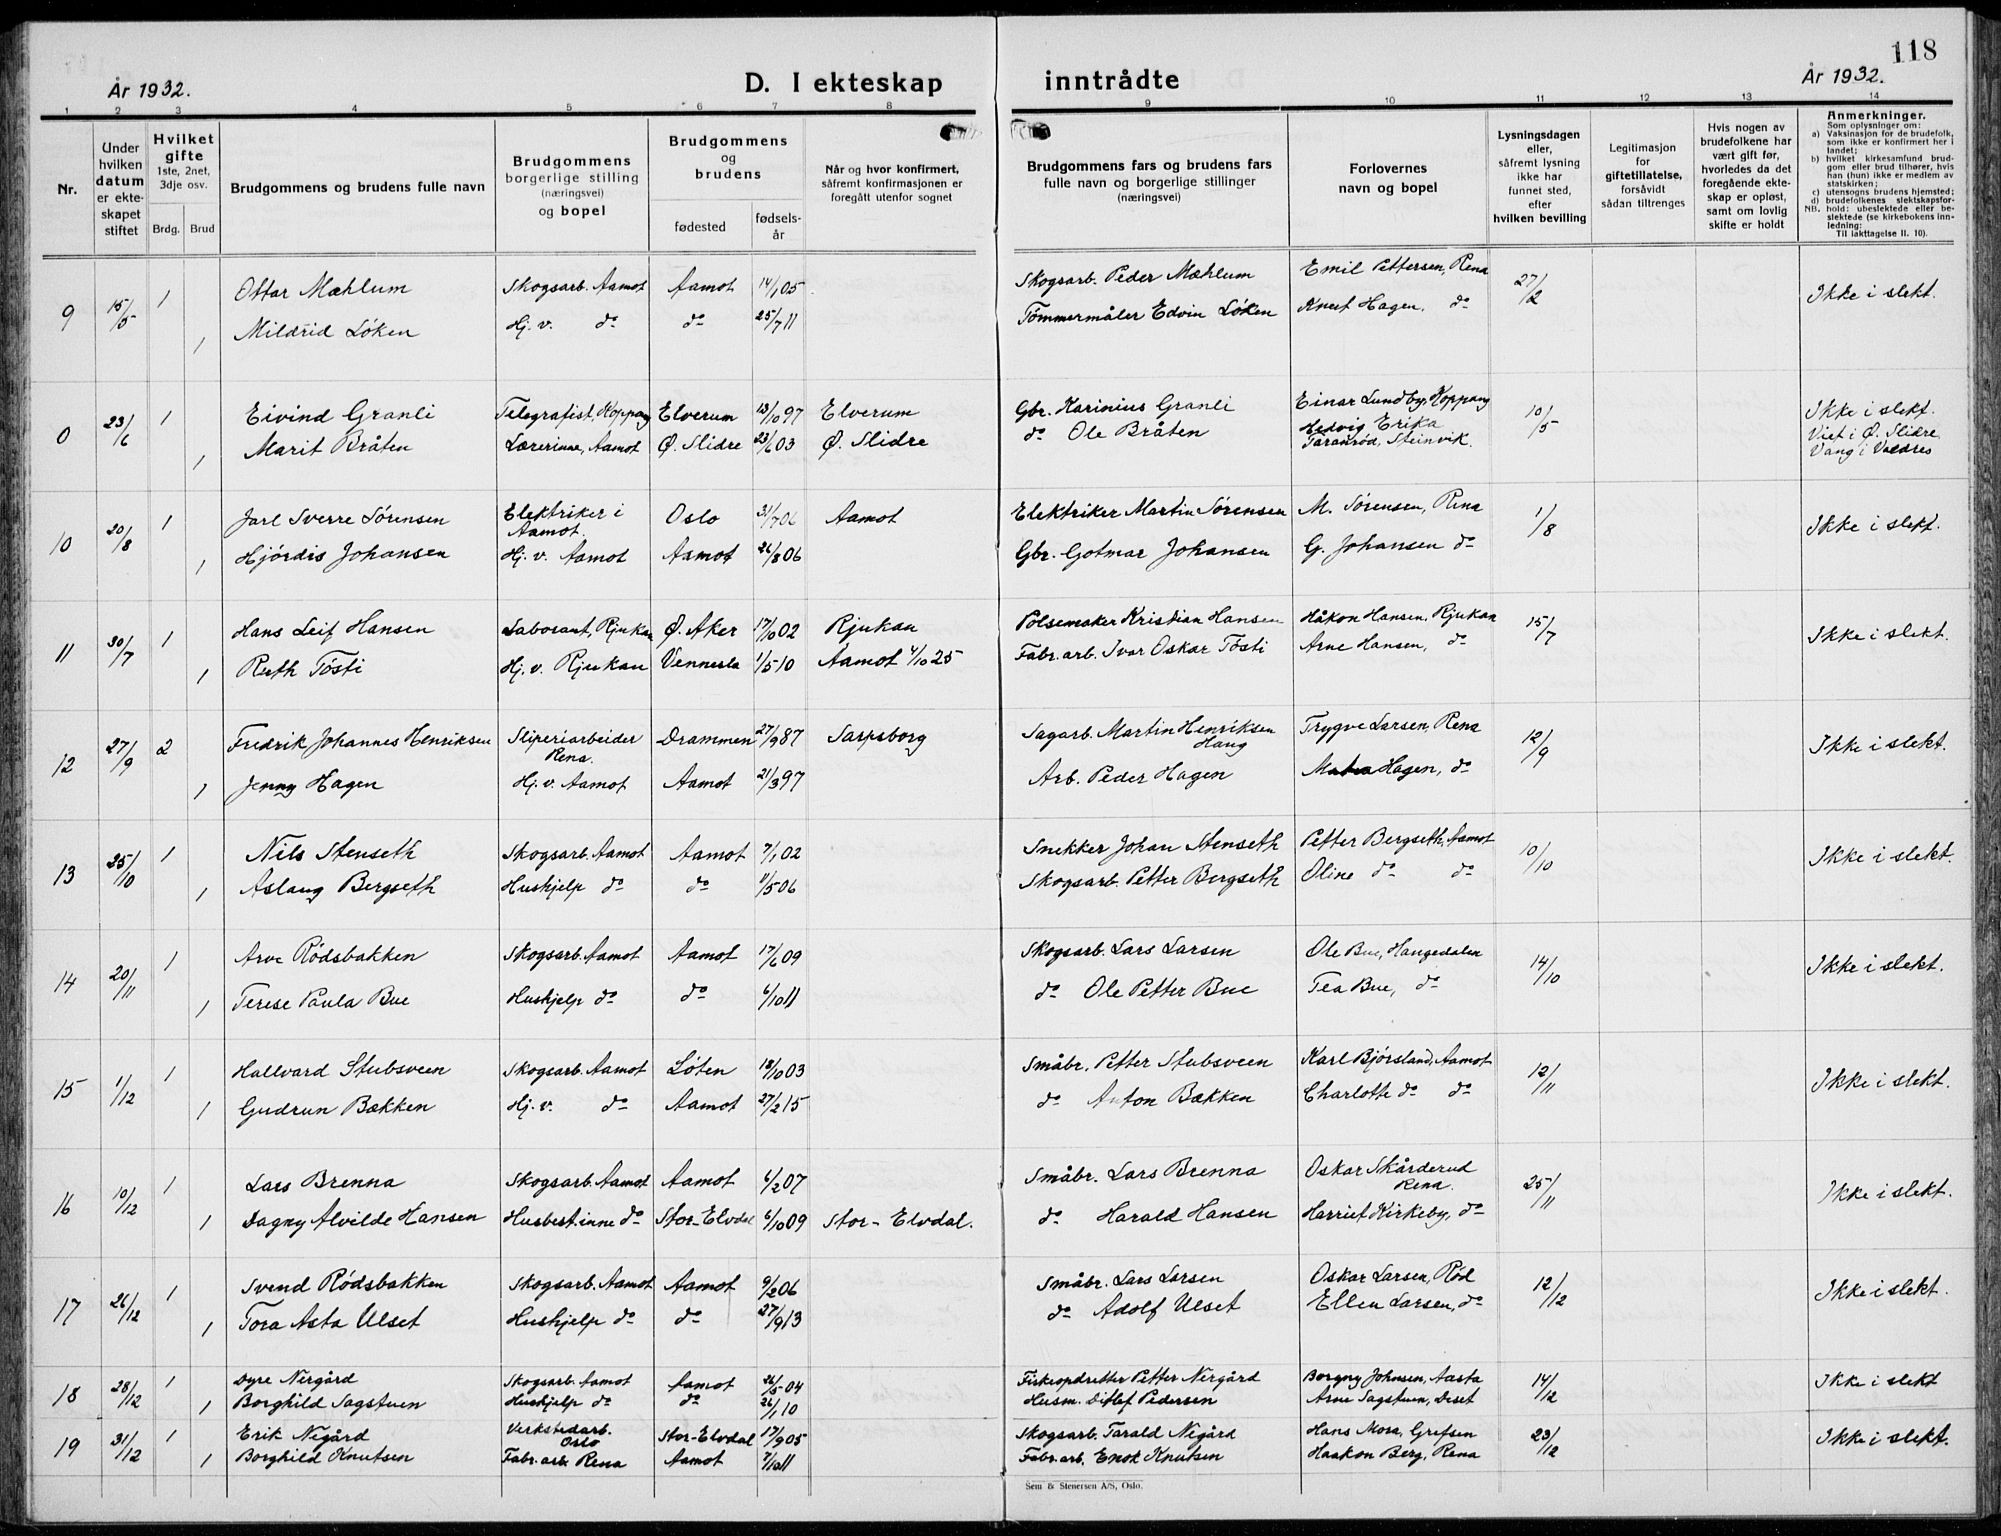 118
År 1932. D. I ekteskap inntrådte År 1932.
1 2 3 4 5 6 7 8 9 10 11 12 13 14
Nr.
Under hvilken datum er ekteskapet stiftet
Hvilket gifte 1ste, 2net, 3dje osv.
Brdg. Brud
Brudgommens og brudens fulle navn
Brudgommens borgerlige stilling (næringsvei) og bopel
Brudgommens og brudens
fødested
fødselsår
Når og hvor konfirmert, såfremt konfirmasjonen er foregått utenfor sognet
Brudgommens fars og brudens fars fulle navn og borgerlige stillinger (næringsvei)
Forlovernes navn og bopel
Lysningsdagen eller, såfremt lysning ikke har funnet sted, efter hvilken bevilling
Legitimasjon for giftetillatelse, forsåvidt sådan tiltrenges
Hvis nogen av brudefolkene har vært gift før, hvorledes da det foregående ekteskap er opløst, samt om lovlig skifte er holdt
Anmerkninger.
Som oplysninger om:
a) Vaksinasjon for de brudefolk, som ikke er konfirmert her i landet;
b) hvilket kirkesamfund brudgom eller brud tilhører, hvis han (hun) ikke er medlem av statskirken;
c) utensogns brudens hjemsted;
d) brudefolkenes slektskapsforhold: ubeslektede eller beslektede (se kirkebokens innledning:
NB. Til iakttagelse II. 10).
9 15/5 1 Ottar Mæhlum Skogsarb. Aamot Aamot 14/1 05 Skogsarb. Peder Mæhlum Emil Pettersen, Rena 27/2 Ikke i slekt.
1 Mildrid Löken Hj. v. do do 25/7 11 Tömmermåler Edvin Löken Knut Hagen, do
0 23/6 1 Eivind Granli Telegrafist, Koppang Elverum 13/10 97 Elverum Gbr. Karinius Granli Einar Lundby, Koppang 10/5 Ikke i slekt.
1 Marit Bråten Lærerinne, Aamot Ø. Slidre 23/6 03 Ø. Slidre do Ole Bråten Hedvig Erika Taranrød, Steinvik. Viet i Ø. Slidre, Vang i Valdres
10 20/8 1 Jarl Sverre Sörensen Elektriker i Aamot. Oslo 31/7 06 Aamot Elektriker Martin Sörensen M. Sörensen, Rena 1/8 Ikke i slekt.
1 Hjördis Johansen Hj. v. Aamot Aamot 26/8 06 Gbr. Gotmar Johansen G. Johansen do
11 30/7 1 Hans Leif Hansen Laborant, Rjukan Ø. Aker 17/10 02 Rjukan Pölsemaker Kristian Hansen Håkon Hansen, Rjukan 15/7 Ikke i slekt.
1 Ruth Tösti Hj. v. Rjukan Vennesla 1/5 10 Aamot 4/10 25 Fabr. arb. Ivar Oskar Tösti Arne Hansen, do
12 27/9 2 Fredrik Johannes Henriksen Sliperiarbeider Rena. Drammen 27/9 87 Sarpsborg Sagarb. Martin Henriksen Haug Trygve Larsen, Rena 12/9 Ikke i slekt.
1 Jenny Hagen Hj. v. Aamot Aamot 21/3 97 Arb. Peder Hagen Hagen, do
13 25/10 1 Nils Stenseth Skogsarb. Aamot Aamot 7/1 02 Snekker Johan Stenseth Petter Bergseth, Aamot 10/10 Ikke i slekt.
1 Aslaug Bergseth Hushjelp do do 11/5 06 Skogsarb. Petter Bergseth Oline do do
14 20/11 1 Arve Rödsbakken Skogsarb. Aamot Aamot 17/6 09 Skogsarb. Lars Larsen Ole Bue, Haugedalen 14/10 Ikke i slekt.
1 Terese Paula Bue Hushjelp do do 6/10 11 do Ole Petter Bue Tea Bue, do
15 1/12 1 Hallvard Stubsveen Skogsarb. Aamot Löten 18/10 03 Småbr. Petter Stubsveen Karl Bjørsland, Aamot 12/11 Ikke i slekt.
1 Gudrun Bækken Hj. v. do Aamot 27/2 15 do Anton Bækken Charlotte do do
16 10/12 1 Lars Brenna Skogsarb. Aamot Aamot 6/2 07 Småbr. Lars Brenna Oskar Skårderud Rena. 25/11 Ikke i slekt.
1 Dagny Alvilde Hansen Husbest.inne do Stor-Elvdal 6/10 09 Stor-Elvdal. do Harald Hansen Harriet Kirkeby, do
17 26/12 1 Svend Rödsbakken Skogsarb. Aamot Aamot 9/2 06 Småbr. Lars Larsen Oskar Larsen, Röd 12/12 Ikke i slekt.
1 Tora Asta Ulset Hushjelp do do 27/9 13 do Adolf Ulset Ellen Larsen, do
18 28/12 1 Dyre Nergård Skogsarb. Aamot Aamot 26/5 04 Fiskeopdretter Petter Nergård Borgny Johnsen, Aasta 14/12 Ikke i slekt
1 Borghild Sagstuen Hushjelp do do 26/1 10 Husm. Ditlef Pedersen Arne Sagstuen, Deset
19 31/12 1 Erik Negård Verkstedarb. Oslo Stor-Elvdal 17/9 05 Skogsarb. Tarald Negård Hans Mora, Grefsen 23/12 Ikke i slekt.
1 Borghild Knutsen Fabr. arb. Rena Aamot 7/10 11 Fabr. arb. Enok Knutsen Haakon Berg, Rena
Sem & Stenersen A/S, Oslo.